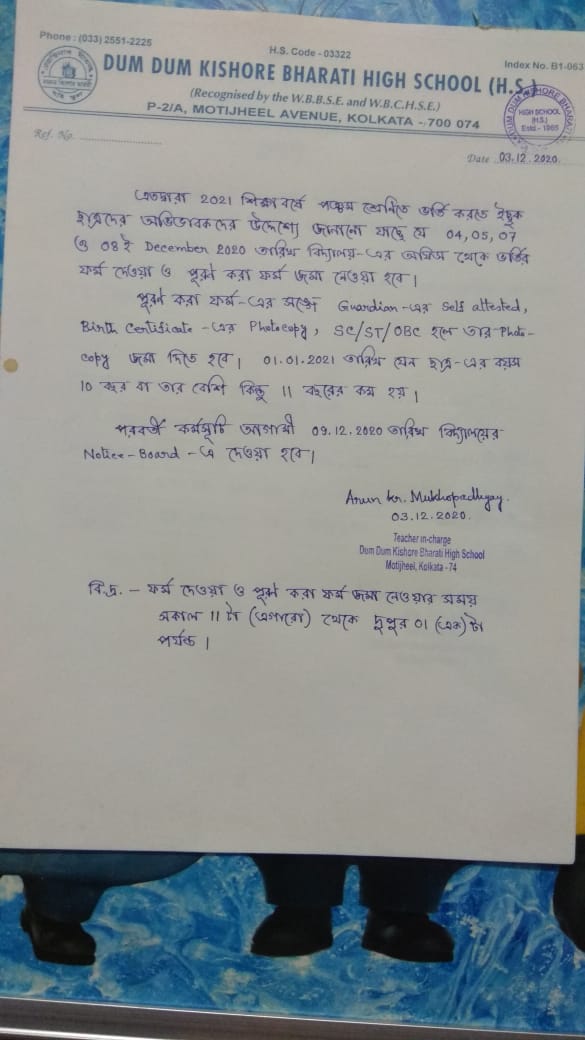 Phone : (033) 2551-2225
H.S. Code - 03322
Index No. B1-063
DUM DUM KISHORE BHARATI HIGH SCHOOL (H.S.)
(Recognised by the W.B.B.S.E. and W.B.C.H.S.E.)
P-2/A, MOTIJHEEL AVENUE, KOLKATA - 700 074
DUM DUM KISHORE BHARATI
HIGH SCHOOL
(H.S.)
Estd - 1965
Ref. No.
Date 03.12.2020.
এতদ্বারা 2021 শিক্ষাবর্ষে পঞ্চম শ্রেণিতে ভর্তি করতে ইচ্ছুক
ছাত্রদের অভিভাবকদের উদ্দেশ্যে জানানো যাচ্ছে যে 04, 05, 07
ও 08ই December 2020 তারিখ বিদ্যালয়-এর অফিস থেকে ভর্তির
ফর্ম দেওয়া ও পূরণ করা ফর্ম জমা নেওয়া হবে।
পূরণ করা ফর্ম-এর সঙ্গে Guardian-এর Self attested,
Birth Certificate-এর Photocopy, SC/ST/OBC হলে তার Photo-
copy জমা দিতে হবে। 01.01.2021 তারিখ যেন ছাত্র-এর বয়স
10 বছর বা তার বেশি কিন্তু 11 বছরের কম হয়।
পরবর্তী কর্মসূচি আগামী 09.12.2020 তারিখ বিদ্যালয়ের
Notice-Board-এ দেওয়া হবে।
Arun kr. Mukhopadhyay.
03.12.2020.
Teacher in-charge
Dum Dum Kishore Bharati High School
Motijheel, Kolkata - 74
বি.দ্র. - ফর্ম দেওয়া ও পূরণ করা ফর্ম জমা নেওয়ার সময়
সকাল 11 টা (এগারো) থেকে দুপুর 01 (এক) টা
পর্যন্ত।